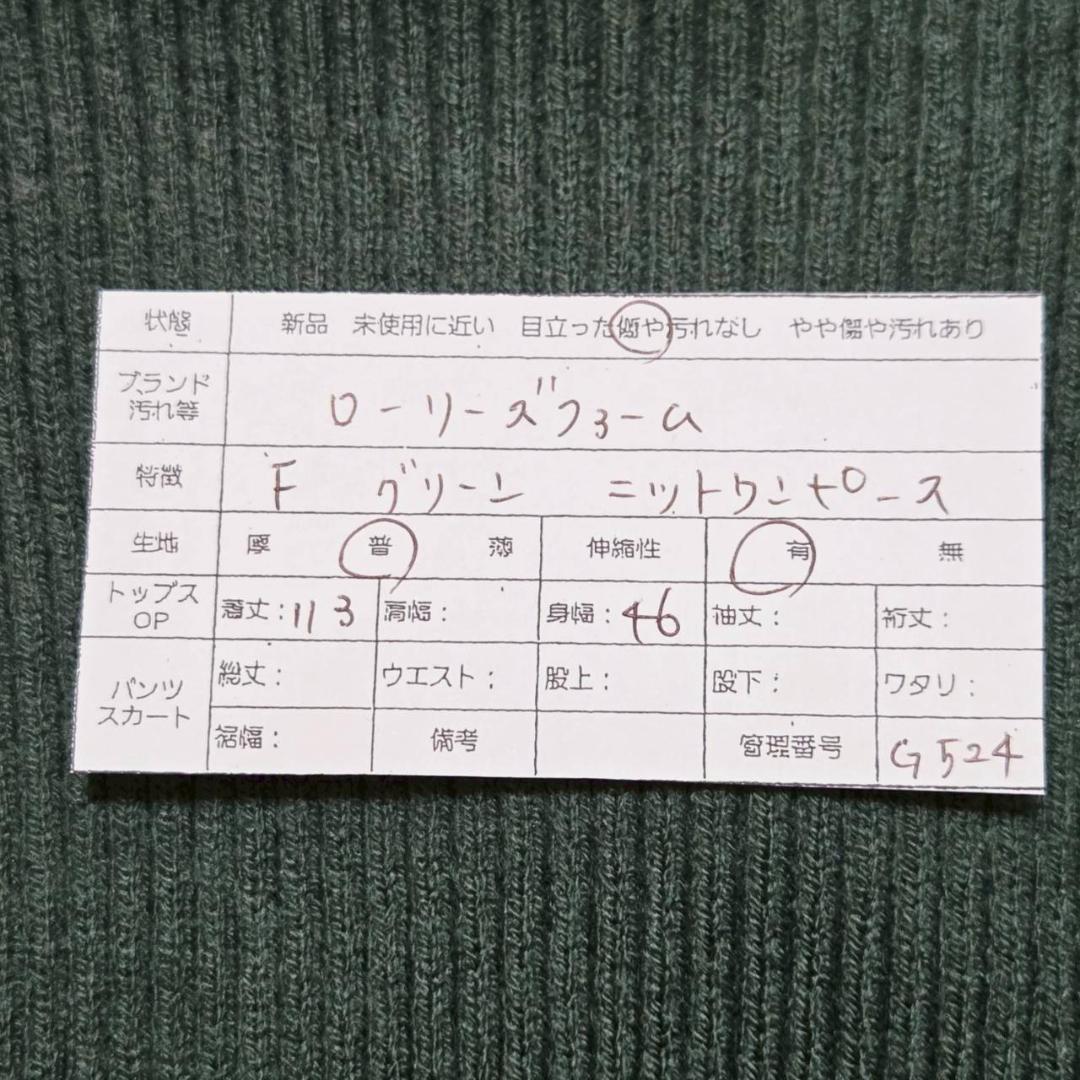 状態 新品 未使用に近い 目立った傷や汚れなし やや傷や汚れあり
ブランド
汚れ等 ローリーズファーム
特徴 F グリーン ニットワンピース
生地 厚 普 薄 伸縮性 有 無
トップス
OP 着丈:113 肩幅: 身幅:46 袖丈: 裄丈:
パンツ
スカート 総丈: ウエスト: 股上: 股下: ワタリ:
裾幅: 備考 管理番号 G524